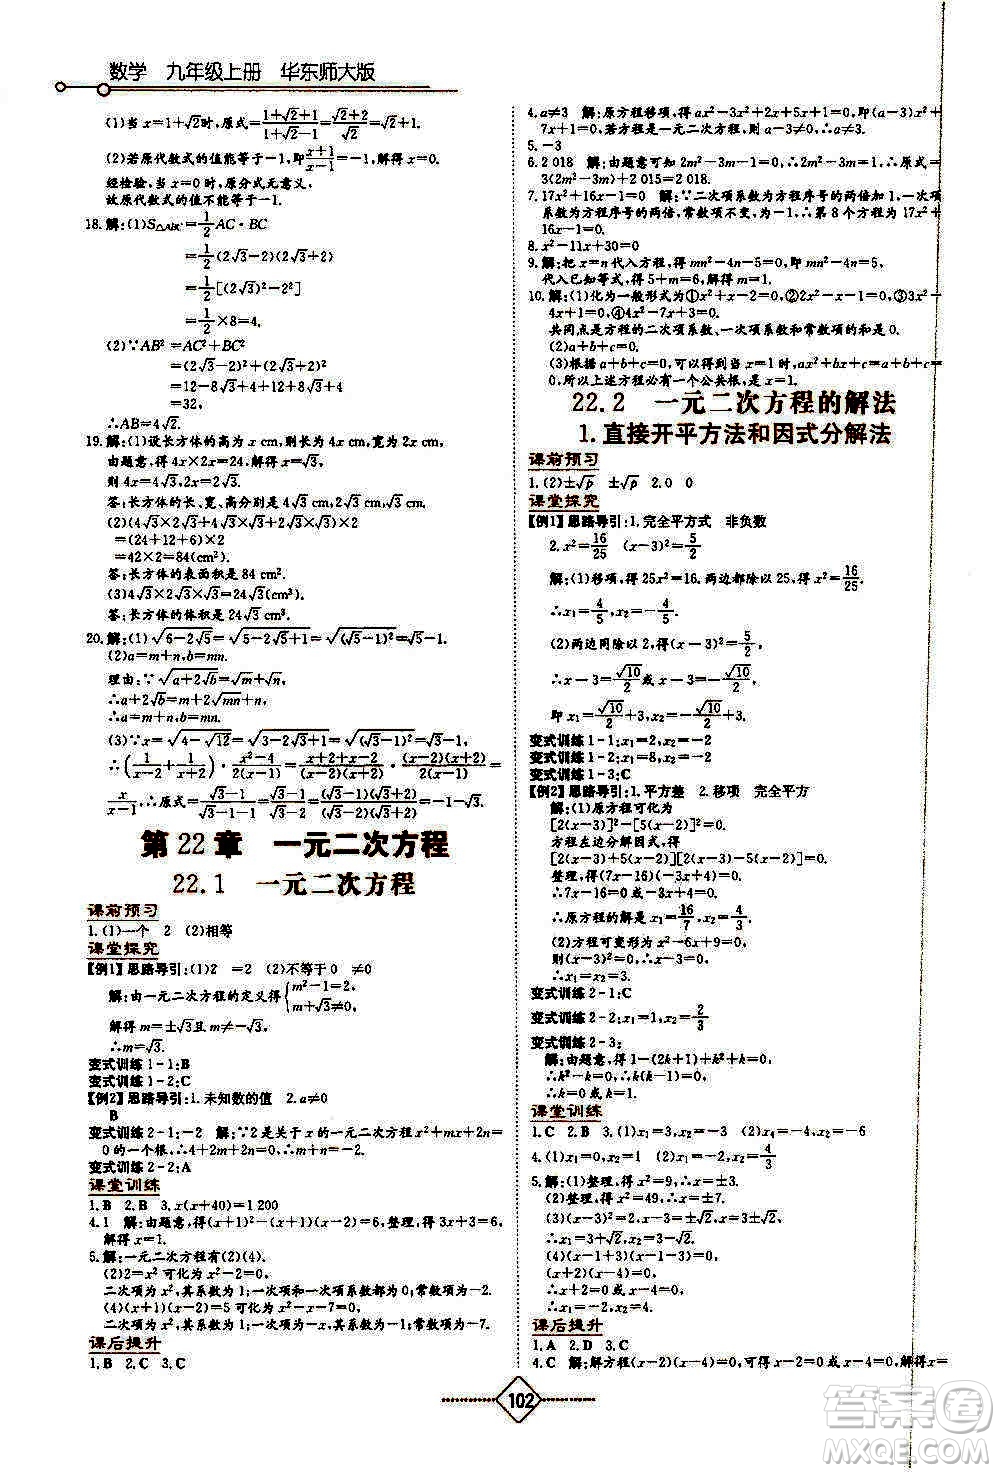 数学 九年级上册 华东师大版
(1)当x=1+√2时,原式=(1+√2+1)/(1+√2-1)=(√2+2)/√2=1+√2.
(2)若原代数式的值能等于-1,即(x+1)/(x-1)=-1,解得x=0.
经检验,当x=0时,原分式无意义,
故原代数式的值不能等于-1.
18.解:(1)S△ABC=1/2 AC·BC
=1/2(2√3-2)(2√3+2)
=1/2[(2√3)²-2²]
=1/2×8=4.
(2)∵AB²=AC²+BC²
=(2√3-2)²+(2√3+2)²
=12-8√3+4+12+8√3+4
=32,
∴AB=4√2.
19.解:(1)设长方体的高为x cm,则长为4x cm,
由题意,得4x×2x=24,解得x=√3,
则4x=4√3,2x=2√3.
答:长方体的长、宽、高分别是4√3 cm,2√3 cm,√3 cm.
(2)(4√3×2√3+4√3×√3+2√3×√3)×2
=(24+12+6)×2
=42×2=84(cm²).
答:长方体的表面积是84 cm².
(3)4√3×2√3×√3=24√3(cm³).
答:长方体的体积是24√3 cm³.
20.解:(1)√(6-2√5)=√(5-2√5+1)=√((√5-1)²)=√5-1.
(2)a=m+n,b=mn.
理由:∵√(a+2√b)=√m+√n,
∴a+2√b=m+2√mn+n,
∴a=m+n,b=mn.
(3)∵x=√(4-√12)=√(3-2√3+1)=√((√3-1)²)=√3-1,
∴(1/(x-2)+1/(x+2))·(x²-4)/(2(x-1))=(x+2+x-2)/((x-2)(x+2))·((x-2)(x+2))/(2(x-1))=
x/(x-1),∴原式=(√3-1)/(√3-1-1)=(√3-1)/(√3-2)=((√3-1)(√3+2))/((√3-2)(√3+2))=-1-√3.
第 22 章 一元二次方程
22.1 一元二次方程
课前预习
1.(1)一个 2 (2)相等
课堂探究
【例1】思路导引:(1)2 =2 (2)不等于0 ≠0
解:由一元二次方程的定义得{m²-1=2,
m+√3≠0,
解得m=±√3且m≠-√3,
∴m=√3.
变式训练1-1:B
变式训练1-2:C
【例2】思路导引:1.未知数的值 2.a≠0
B
变式训练2-1:-2 解:∵2是关于x的一元二次方程x²+mx+2n=
0的一个根,∴4+2m+2n=0,∴m+n=-2.
变式训练2-2:A
课堂训练
1.B 2.B 3.x(x+40)=1 200
4.1 解:由题意,得(x+1)²-(x+1)(x-2)=6,整理,得3x+3=6,
解得x=1.
5.解:一元二次方程有(2)(4).
(2)2=x²可化为x²-2=0,
二次项为x²,其系数为1;一次项和一次项系数都为0;常数项为-2.
(4)(x+1)(x-2)=5可化为x²-x-7=0,
二次项为x²,其系数为1;一次项为-x,其系数为-1;常数项为-7.
课后提升
1.B 2.C 3.C
4.a≠3 解:原方程移项,得ax²-3x²+2x+5x+1=0,即(a-3)x²+
7x+1=0,若方程是一元二次方程,则a-3≠0,∴a≠3.
5.-3
6.2 018 解:由题意可知2m²-3m-1=0,∴2m²-3m=1,∴原式=
3(2m²-3m)+2 015=2 018.
7.17x²+16x-1=0 解:∵二次项系数为方程序号的两倍加1,一次项
系数为方程序号的两倍,常数项不变,为-1,∴第8个方程为17x²+
16x-1=0.
8.x²-11x+30=0
9.解:把x=n代入方程,得mn²-4n-5=0,即mn²-4n=5,
代入已知等式,得5+m=6,解得m=1.
10.解:(1)化为一般形式为①x²+x-2=0,②2x²-x-1=0,③3x²-
4x+1=0,④4x²-7x+3=0.
共同点是方程的二次项系数、一次项系数和常数项和为0.
(2)a+b+c=0.
(3)根据a+b+c=0,可得当x=1时,ax²+bx+c=a+b+c=
0,所以上述方程必有一个公共根,是x=1.
22.2 一元二次方程的解法
1.直接开平方法和因式分解法
课前预习
1.(2)±√p ±√p 2.0 0
课堂探究
【例1】思路导引:1.完全平方式 非负数
2.x²=16/25 (x-3)²=5/2
解:(1)移项,得25x²=16.两边都除以25,得x²=16/25,
∴x₁=4/5,x₂=-4/5.
(2)两边同除以2,得(x-3)²=5/2,
∴x-3=√10/2或x-3=-√10/2,
即x₁=√10/2+3,x₂=-√10/2+3.
变式训练1-1:x₁=2,x₂=-2
变式训练1-2:x₁=8,x₂=-2
变式训练1-3:C
【例2】思路导引:1.平方差 2.移项 完全平方
解:(1)原方程可化为
[2(x-3)]²-[5(x-2)]²=0.
方程左边分解因式,得
[2(x-3)+5(x-2)][2(x-3)-5(x-2)]=0.
整理,得(7x-16)(-3x+4)=0.
∴7x-16=0或-3x+4=0.
∴原方程的解是x₁=16/7,x₂=4/3.
(2)方程可变形为x²-6x+9=0,
因式分解,得(x-3)²=0,
∴x₁=x₂=3.
变式训练2-1:C
变式训练2-2:x₁=1,x₂=-2/3
变式训练2-3:
解:由题意,得1-2(k+1)+k²+k+1=0,
∴k²-k=0,∴k(k-1)=0,
∴k=0或k=1.
课堂训练
1.C 2.B 3.(1)x₁=3,x₂=-3 (2)x₁=-2,x₂=-6
4.(1)x₁=0,x₂=1 (2)x₁=4,x₂=4/3
5.解:(1)整理,得x²=9,∴x=±3.
(2)整理,得x²=49,∴x=±7.
(3)(x-3)²=2,∴x-3=±√2,∴x=3±√2,
∴x₁=3+√2,x₂=3-√2.
(4)(x-1+3)(x-1-3)=0,
(x+2)(x-4)=0,∴x+2=0或x-4=0,
∴x₁=-2,x₂=4.
课后提升
1.A 2.D 3.C
4.C 解:解方程(x-2)(x-4)=0,可得x-2=0或x-4=0,解得x=
102
答案圈
MXQE.COM